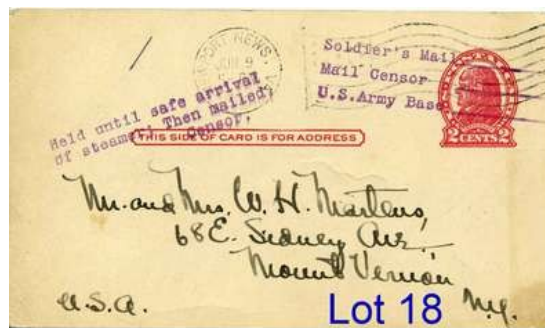 NEWPORT NEWS,
JUN 9
VA
Soldier's Mail
Mail Censor
U.S.Army Base
Held until safe arrival
of steamer. Then mailed.
Censor.
THIS SIDE OF CARD IS FOR ADDRESS
2 CENTS 2
Mr. and Mrs. W. H. Martens,
68 E. Sidney Ave.
Mount Vernon
N.Y.
U.S.A.
Lot 18